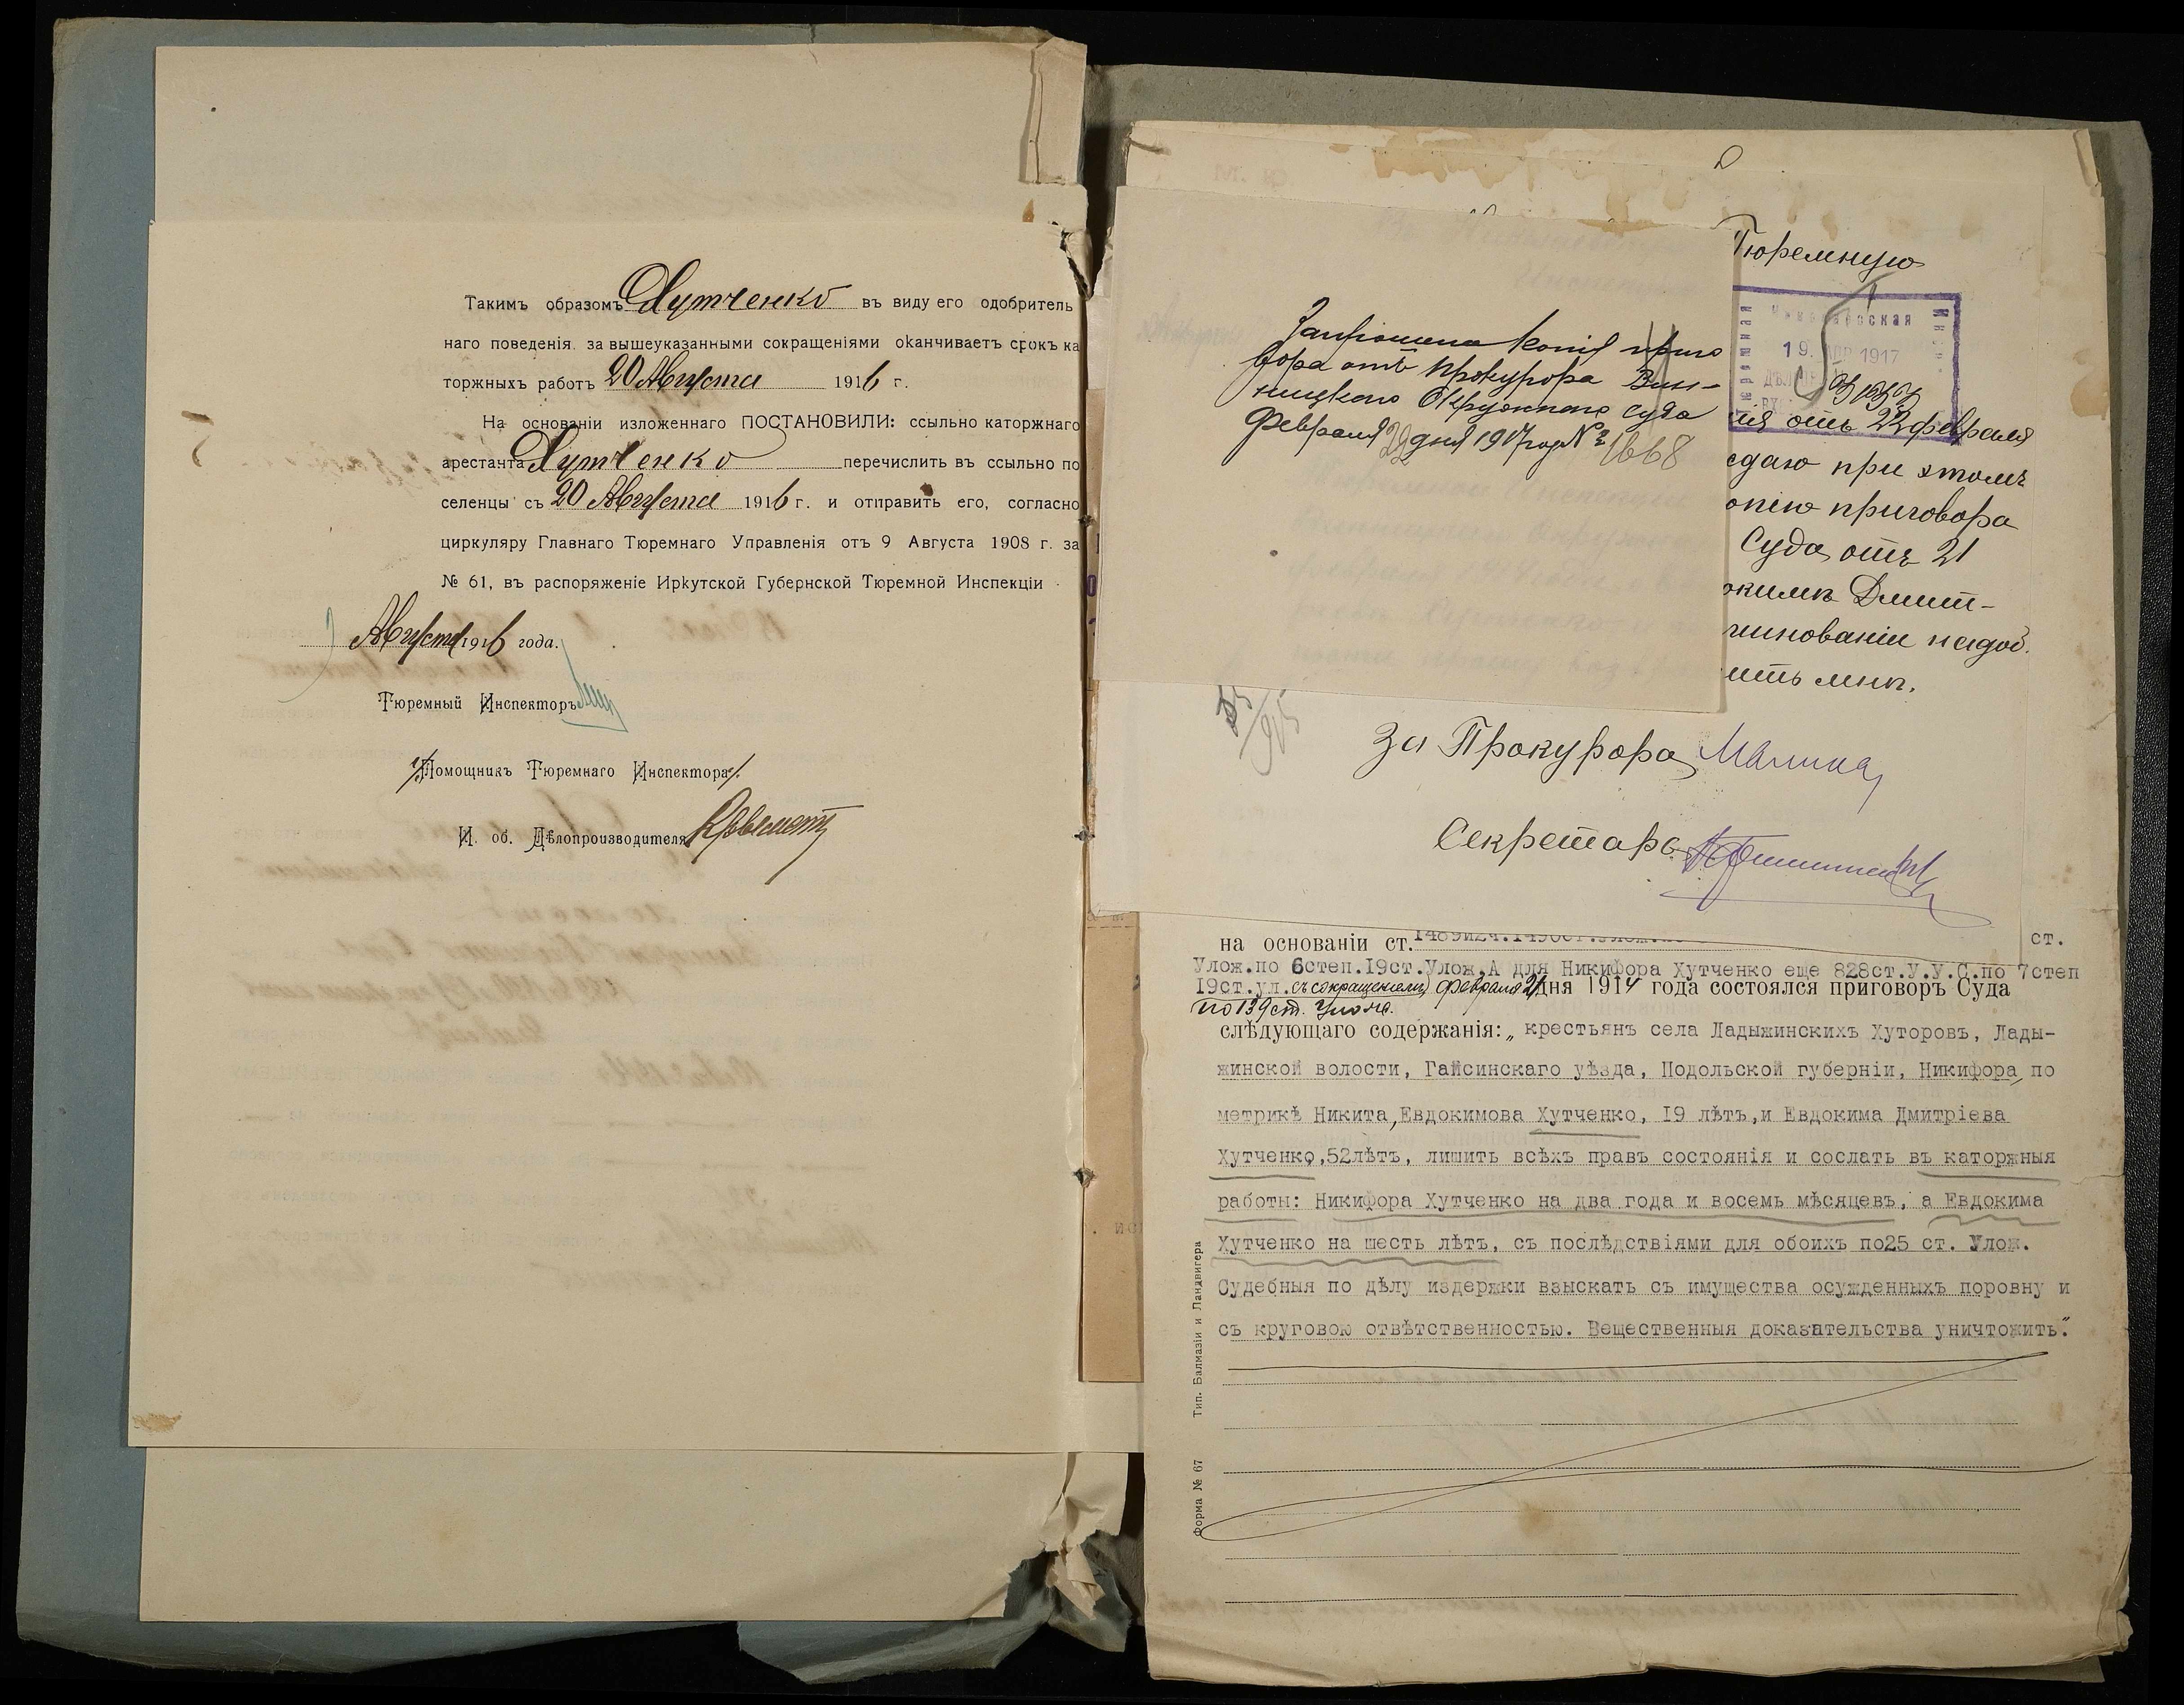 Такимъ образомъ Хутченко въ виду его одобритель
наго поведенія за вышеуказанными сокращеніями оканчиваетъ срокъ ка
торжныхъ работъ 20 Августа 1916 г.
На основаніи изложеннаго ПОСТАНОВИЛИ: ссыльно каторжнаго
арестанта Хутченко перечислить въ ссыльно по
селенцы съ 20 Августа 1916 г. и отправить его, согласно
циркуляру Главнаго Тюремнаго Управленія отъ 9 Августа 1908 г. за
№ 61, въ распоряженіе Иркутской Губернской Тюремной Инспекціи
Августа 1916 года.
Тюремный Инспекторъ
Помощникъ Тюремнаго Инспектора
И. об. Дѣлопроизводителя
Запрошена копія приго
вора отъ Прокурора Вин-
ницкаго Окружнаго суда
Февраля 22 дня 1917 год № 1668
Тюремную
19 АПР 1917
ія отъ 22 февраля
едаю при этомъ
опію приговора
Суда отъ 21
окимъ Дмит-
миновании надоб.
ить мнѣ.
За Прокурора
Секретарь
на основаніи ст. ст.
Улож.по 6степ.19ст.Улож.А для Никифора Хутченко еще 828ст.У.У.С.по 7степ
19ст.ул.съ сокращеніемъ Февраля 21 дня 1914 года состоялся приговоръ Суда
по 139 ст. Улож.
слѣдующаго содержанія: „ крестьянъ села Ладыжинскихъ Хуторовъ, Лады-
жинской волости, Гайсинскаго уѣзда, Подольской губерніи, Никифора, по
метрикѣ Никита, Евдокимова Хутченко, 19 лѣтъ,и Евдокима Дмитріева
Хутченко,52лѣтъ, лишить всѣхъ правъ состоянія и сослать въ каторжныя
работы: Никифора Хутченко на два года и восемь мѣсяцевъ, а Евдокима
Хутченко на шесть лѣтъ, съ послѣдствіями для обоихъ по25 ст. Улож.
Судебныя по дѣлу издержки взыскать съ имущества осужденныхъ поровну и
съ круговою отвѣтственностью. Вещественныя доказательства уничтожить".
Форма № 67 Тип. Балмазіи и Ландвигера